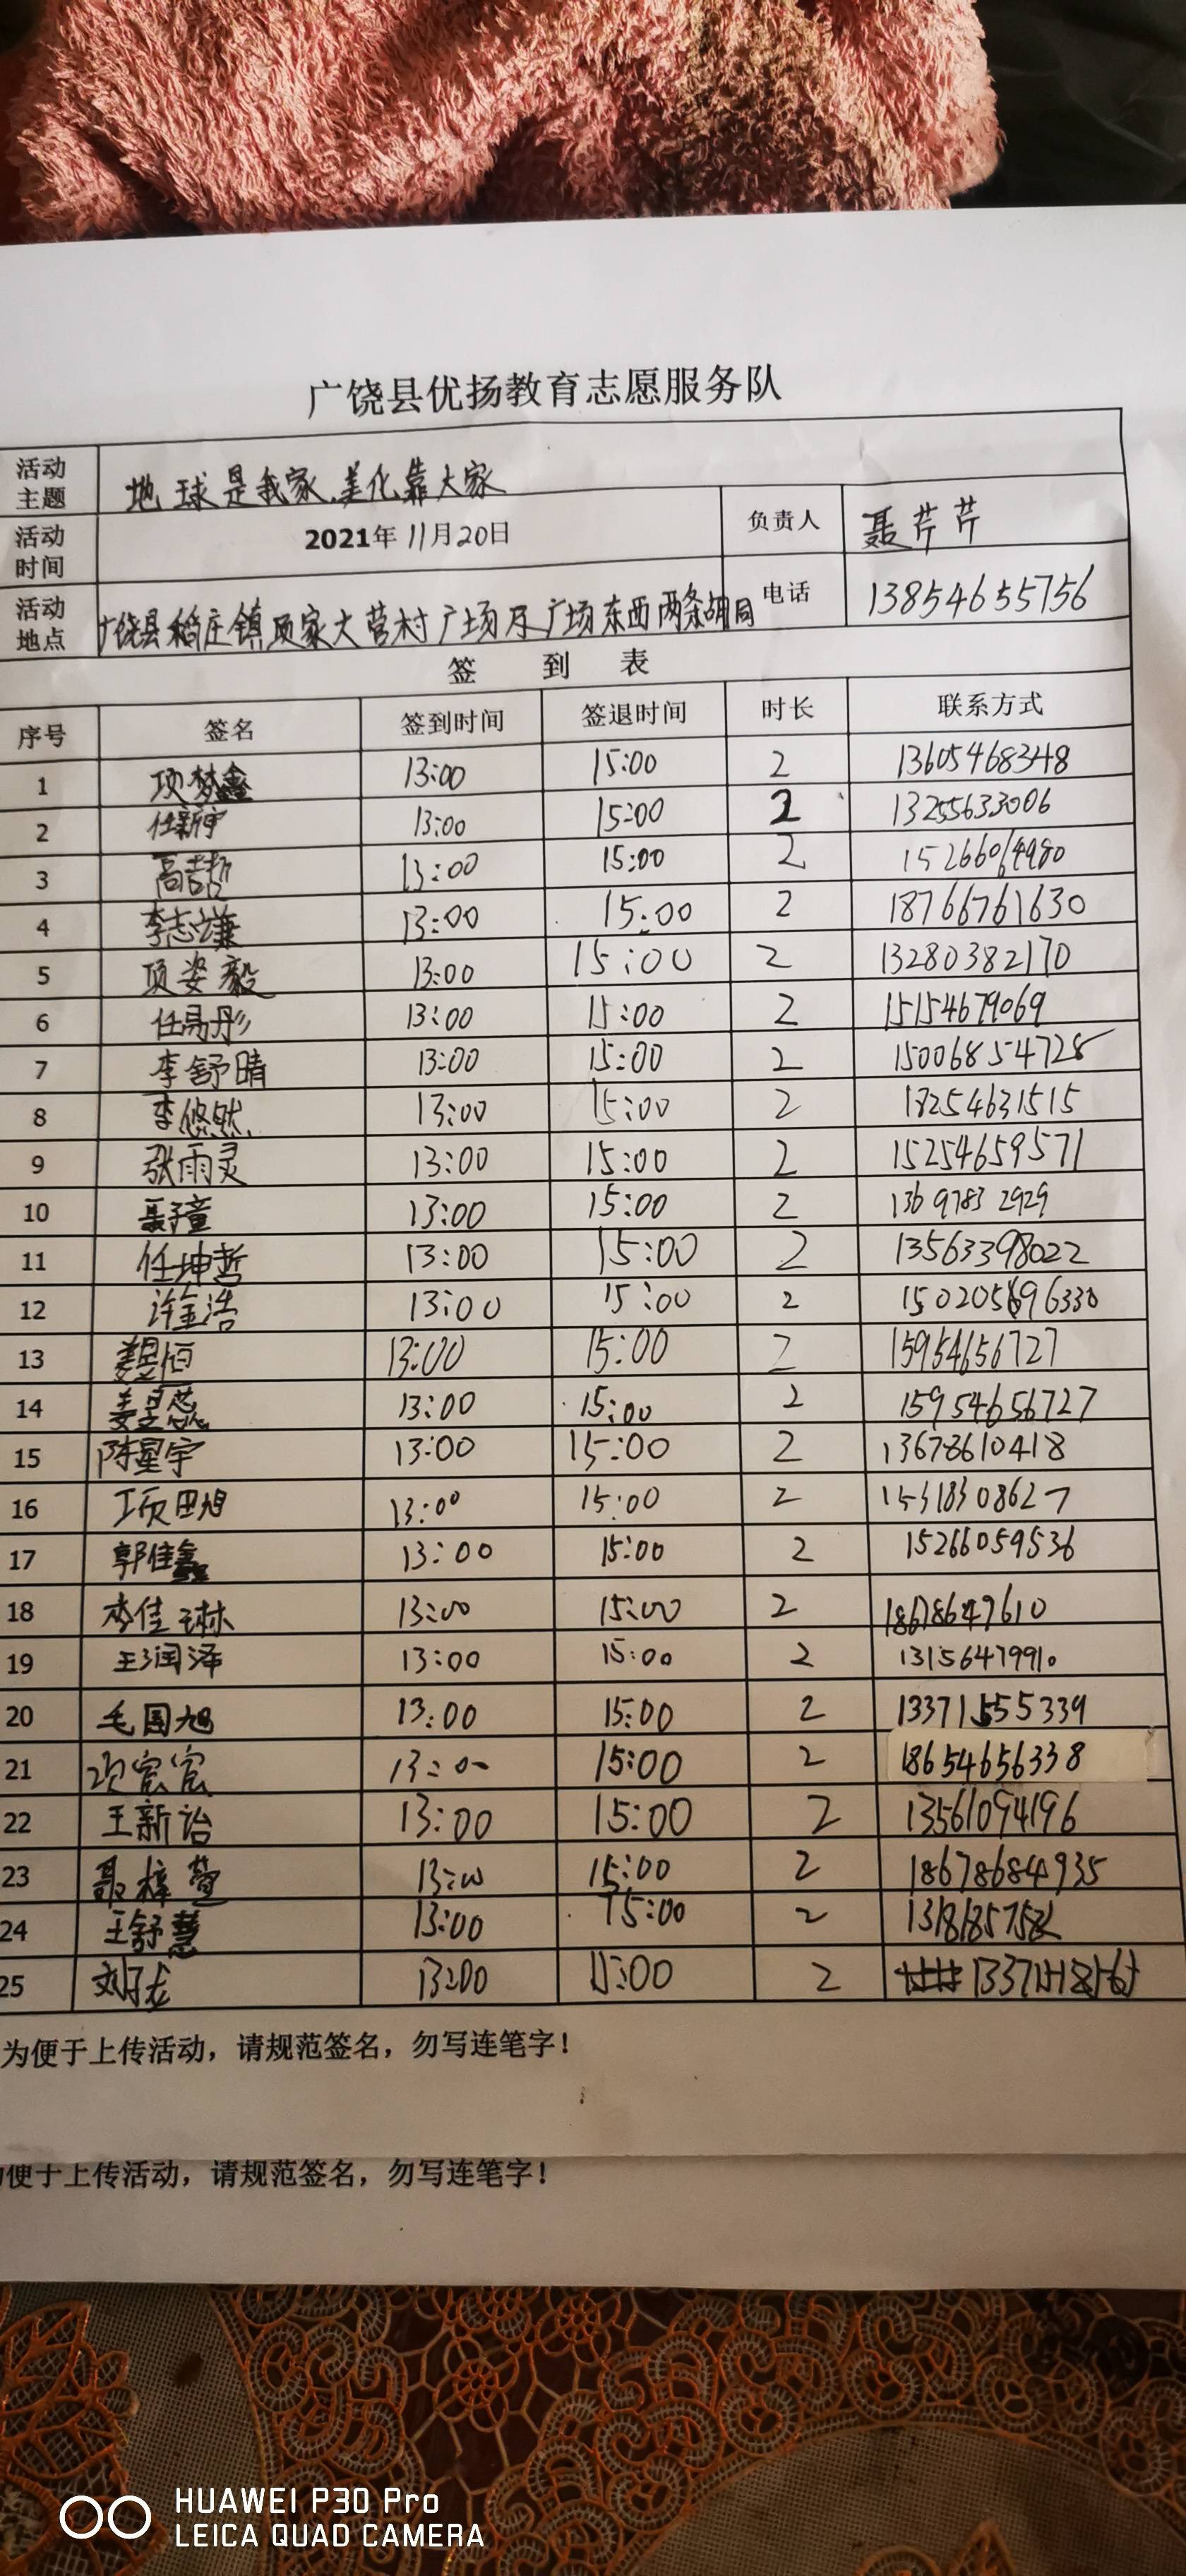 广饶县优扬教育志愿服务队
活动主题 地球是我家,美化靠大家
活动时间 2021年11月20日 负责人 聂芹芹
活动地点 广饶县稻庄镇项家大营村广场及广场东西两条胡同 电话 13854655756
签 到 表
序号 签名 签到时间 签退时间 时长 联系方式
1 项梦鑫 13:00 15:00 2 13605468348
2 任新宇 13:00 15:00 2 13255633006
3 高吉哲 13:00 15:00 2 15266064980
4 李志谦 13:00 15:00 2 18766761630
5 项姿毅 13:00 15:00 2 13280382170
6 任易彤 13:00 15:00 2 15154679069
7 李舒晴 13:00 15:00 2 15006854728
8 李悠然 13:00 15:00 2 18254631515
9 张雨灵 13:00 15:00 2 15254659571
10 聂子童 13:00 15:00 2 13697832929
11 任坤哲 13:00 15:00 2 13563398022
12 许金浩 13:00 15:00 2
13 姜昱恒 13:00 15:00 2 15954656727
14 姜昱蕊 13:00 15:00 2 15954656727
15 陈星宇 13:00 15:00 2 13678610418
16 项田旭 13:00 15:00 2 15318308627
17 郭佳鑫 13:00 15:00 2 15266059536
18 李佳琳 13:00 15:00 2 18678647610
19 王润泽 13:00 15:00 2 13156479910
20 毛国旭 13:00 15:00 2 13371555339
21 项宸宸 13:00 15:00 2 18654656338
22 王新诒 13:00 15:00 2 13561094196
23 聂梓萱 13:00 15:00 2 18678684935
24 王舒慧 13:00 15:00 2
25 刘子龙 13:00 15:00 2
为便于上传活动，请规范签名，勿写连笔字！
便于上传活动，请规范签名，勿写连笔字！
HUAWEI P30 Pro
LEICA QUAD CAMERA